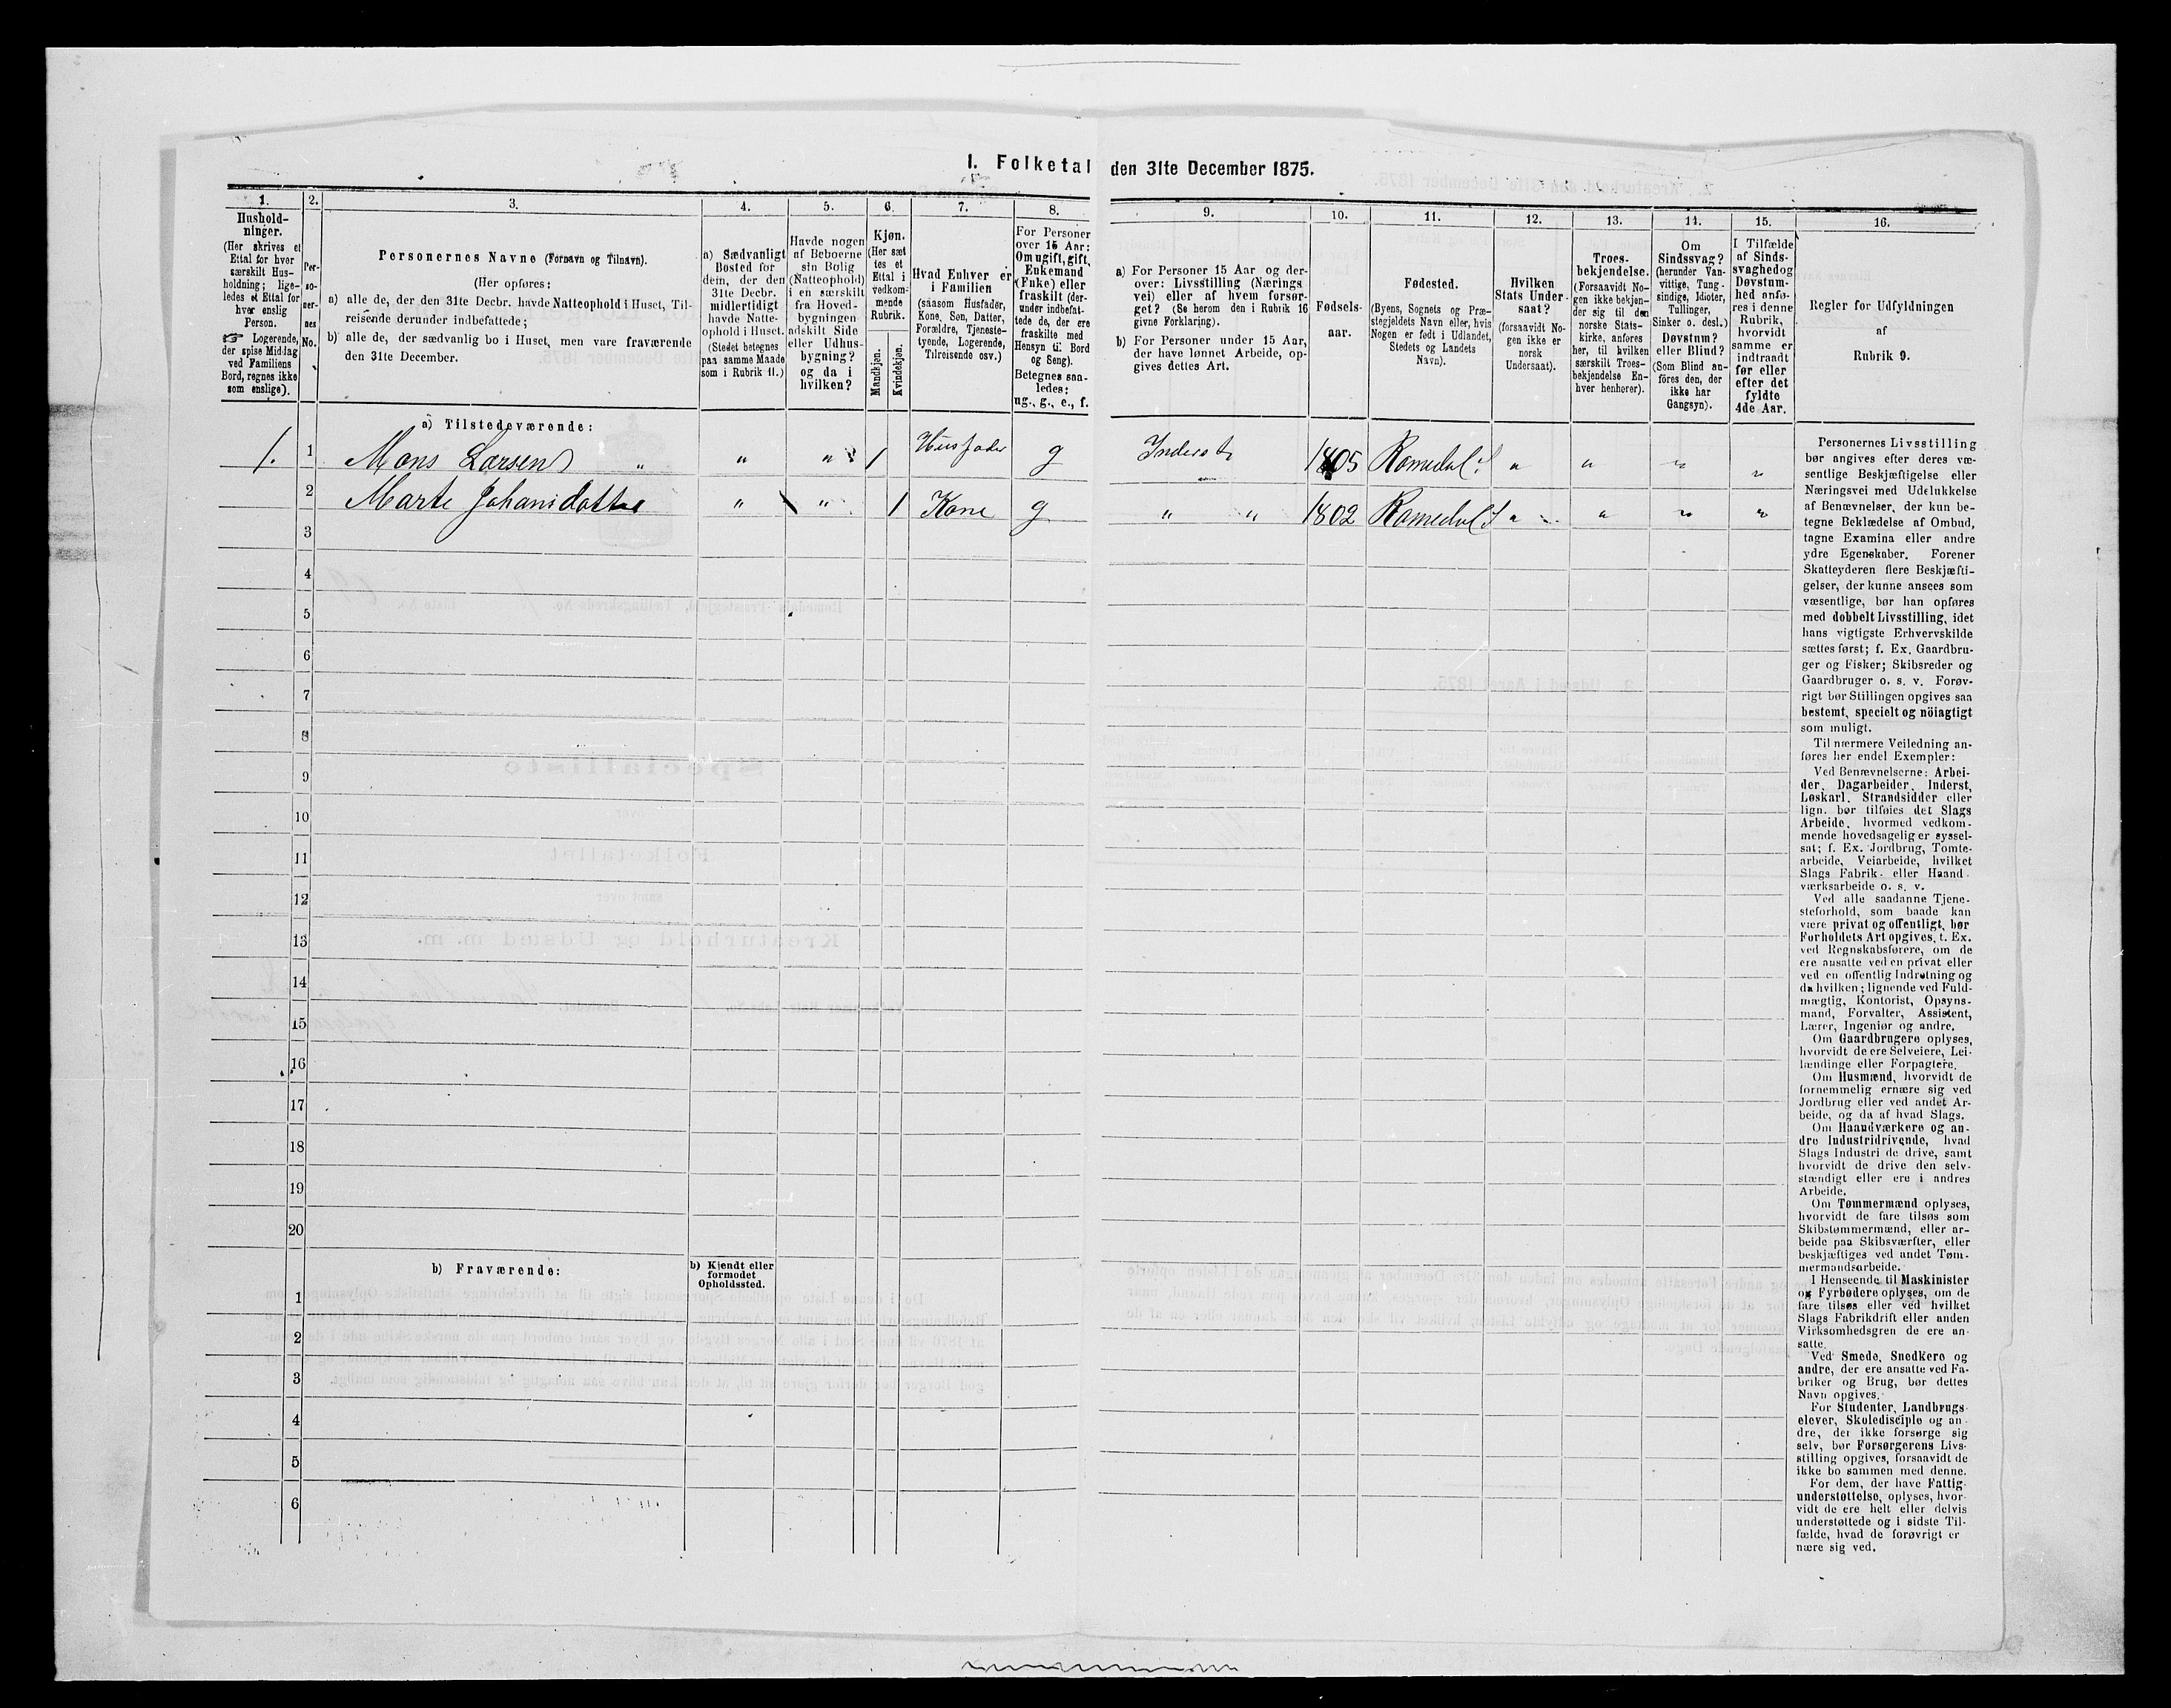 1. Folketal den 31te December 1875.
1.
Hushold-
ninger.
(Her skrives et
Ettal for hver
særskilt Hus-
holdning; lige-
ledes et Ettal for
hver enslig
Person.
☞ Logerende,
der spise Middag
ved Familiens
Bord, regnes ikke
som enslige).
2.
Per-
so-
ner-
nes
No.
3.
Personernes Navne (Fornavn og Tilnavn).
(Her opføres:
a) alle de, der den 31te Decbr. havde Natteophold i Huset, Til-
reisende derunder indbefattede;
b) alle de, der sædvanlig bo i Huset, men vare fraværende
den 31te December.
4.
a) Sædvanligt
Bosted for
dem, der den
31te Decbr.
midlertidigt
havde Natte-
ophold i Huset.
(Stedet betegnes
paa samme Maade
som i Rubrik 11.)
5.
Havde nogen
af Beboerne
sin Bolig
(Natteophold)
i en særskilt
fra Hoved-
bygningen
adskilt Side
eller Udhus-
bygning?
og da i
hvilken?
6.
Kjøn.
(Her sæt
tes et
Ettal i
vedkom-
mende
Rubrik.
Mandkjøn.
Kvindekjøn.
7.
Hvad Enhver er
i Familien
(saasom Husfader,
Kone, Søn, Datter,
Forældre, Tjeneste-
tyende, Logerende,
Tilreisende osv.)
8.
For Personer
over 15 Aar:
Om ugift, gift,
Enkemand
(Enke) eller
fraskilt (der-
under indbefat-
tede de, der ere
fraskilte med
Hensyn til Bord
og Seng).
Betegnes saa-
ledes:
ug., g., e., f.
9.
a) For Personer 15 Aar og der-
over: Livsstilling (Nærings
vei) eller af hvem forsør-
get? (Se herom den i Rubrik 16
givne Forklaring).
b) For Personer under 15 Aar,
der have lønnet Arbeide, op-
gives dettes Art.
10.
Fødsels-
aar.
11.
Fødested.
(Byens, Sognets og Præ-
stegjeldets Navn eller, hvis
Nogen er født i Udlandet,
Stedets og Landets
Navn).
12.
Hvilken
Stats Under-
saat?
(forsaavidt No-
gen ikke er
norsk
Undersaat).
13.
Troes-
bekjendelse.
(Forsaavidt No-
gen ikke bekjen-
der sig til den
norske Stats-
kirke, anføres
her, til hvilken
særskilt Troes-
bekjendelse En-
hver henhører).
14.
Om
Sindssvag?
(herunder Van-
vittige, Tung-
sindige, Idioter,
Tullinger,
Sinker o. desl.)
Døvstum?
eller Blind?
(Som Blind an-
føres den, der
ikke har
Gangsyn).
15.
I Tilfælde
af Sinds-
svaghed og
Døvstum-
hed anfø-
res i denne
Rubrik,
hvorvidt
samme er
indtraadt
før eller
efter det
fyldte
4de Aar.
16.
Regler for Udfyldningen
af
Rubrik 9.
a) Tilstedeværende:
1. 1 Mons Larsen " " " 1 Husfader g Inderst 1805 Romedal S " " " "
2 Marte Johansdatter " " 1 Kone g " " 1802 Romedal S " " " "
3
4
5
6
7
8
9
10
11
12
13
14
15
16
17
18
19
20
b) Fraværende:
b) Kjendt eller
formodet
Opholdssted.
1
2
3
4
5
6
Personernes Livsstilling
bør angives efter deres væ-
sentlige Beskjæftigelse eller
Næringsvei med Udelukkelse
af Benævnelser, der kun be-
tegne Beklædelse af Ombud,
tagne Examina eller andre
ydre Egenskaber. Forener
Skatteyderen flere Beskjæfti-
gelser, der kunne ansees som
væsentlige, bør han opføres
med dobbelt Livsstilling, idet
hans vigtigste Erhvervskilde
sættes først; f. Ex. Gaardbru-
ger og Fisker; Skibsreder og
Gaardbruger o. s. v. Forøv-
rigt bør Stillingen opgives saa
bestemt, specielt og nöiagtigt
som muligt.
Til nærmere Veiledning an-
føres her endel Exempler:
Ved Benævnelserne: Arbei-
der, Dagarbeider, Inderst,
Løskarl, Strandsidder eller
lign. bør tilføies det Slags
Arbeide, hvormed vedkom-
mende hovedsagelig er syssel-
sat; f. Ex. Jordbrug, Tomte-
arbeide, Veiarbeide, hvilket
Slags Fabrik- eller Haand-
værksarbeide o. s. v.
Ved alle saadanne Tjene-
steforhold, som baade kan
være privat og offentligt, bør
Forholdets Art opgives, t. Ex.
ved Regnskabsførere, om de
ere ansatte ved en privat eller
ved en offentlig Indretning og
da hvilken; lignende ved Fuld-
mægtig, Kontorist, Opsyns-
mand, Forvalter, Assistent,
Lærer, Ingeniør og andre.
Om Gaardbrugere oplyses,
hvorvidt de ere Selveiere, Lei-
lændinge eller Forpagtere.
Om Husmænd, hvorvidt de
fornemmelig ernære sig ved
Jordbrug eller ved andet Ar-
beide, og da af hvad Slags.
Om Haandværkere og an-
dre Industridrivende, hvad
Slags Industri de drive, samt
hvorvidt de drive den selv-
stændigt eller ere i andres
Arbeide.
Om Tømmermænd oplyses,
hvorvidt de fare tilsøs som
Skibstømmermænd, eller ar-
beide paa Skibsværfter, eller
beskjæftiges ved andet Tøm-
mermandsarbeide.
I Henseende til Maskinister
og Fyrbødere oplyses, om de
fare tilsøs eller ved hvilket
Slags Fabrikdrift eller anden
Virksomhedsgren de ere an-
satte.
Ved Smede, Snedkere og
andre, der ere ansatte ved Fa-
briker og Brug, bør dettes
Navn opgives.
For Studenter, Landbrugs-
elever, Skoledisciple og an-
dre, der ikke forsørge sig
selv, bør Forsørgerens Livs-
stilling opgives, forsaavidt de
ikke bo sammen med denne.
For dem, der have Fattig-
understøttelse, oplyses, hvor-
vidt de ere helt eller delvis
understøttede og i sidste Til-
fælde, hvad de forøvrigt er
nære sig ved.